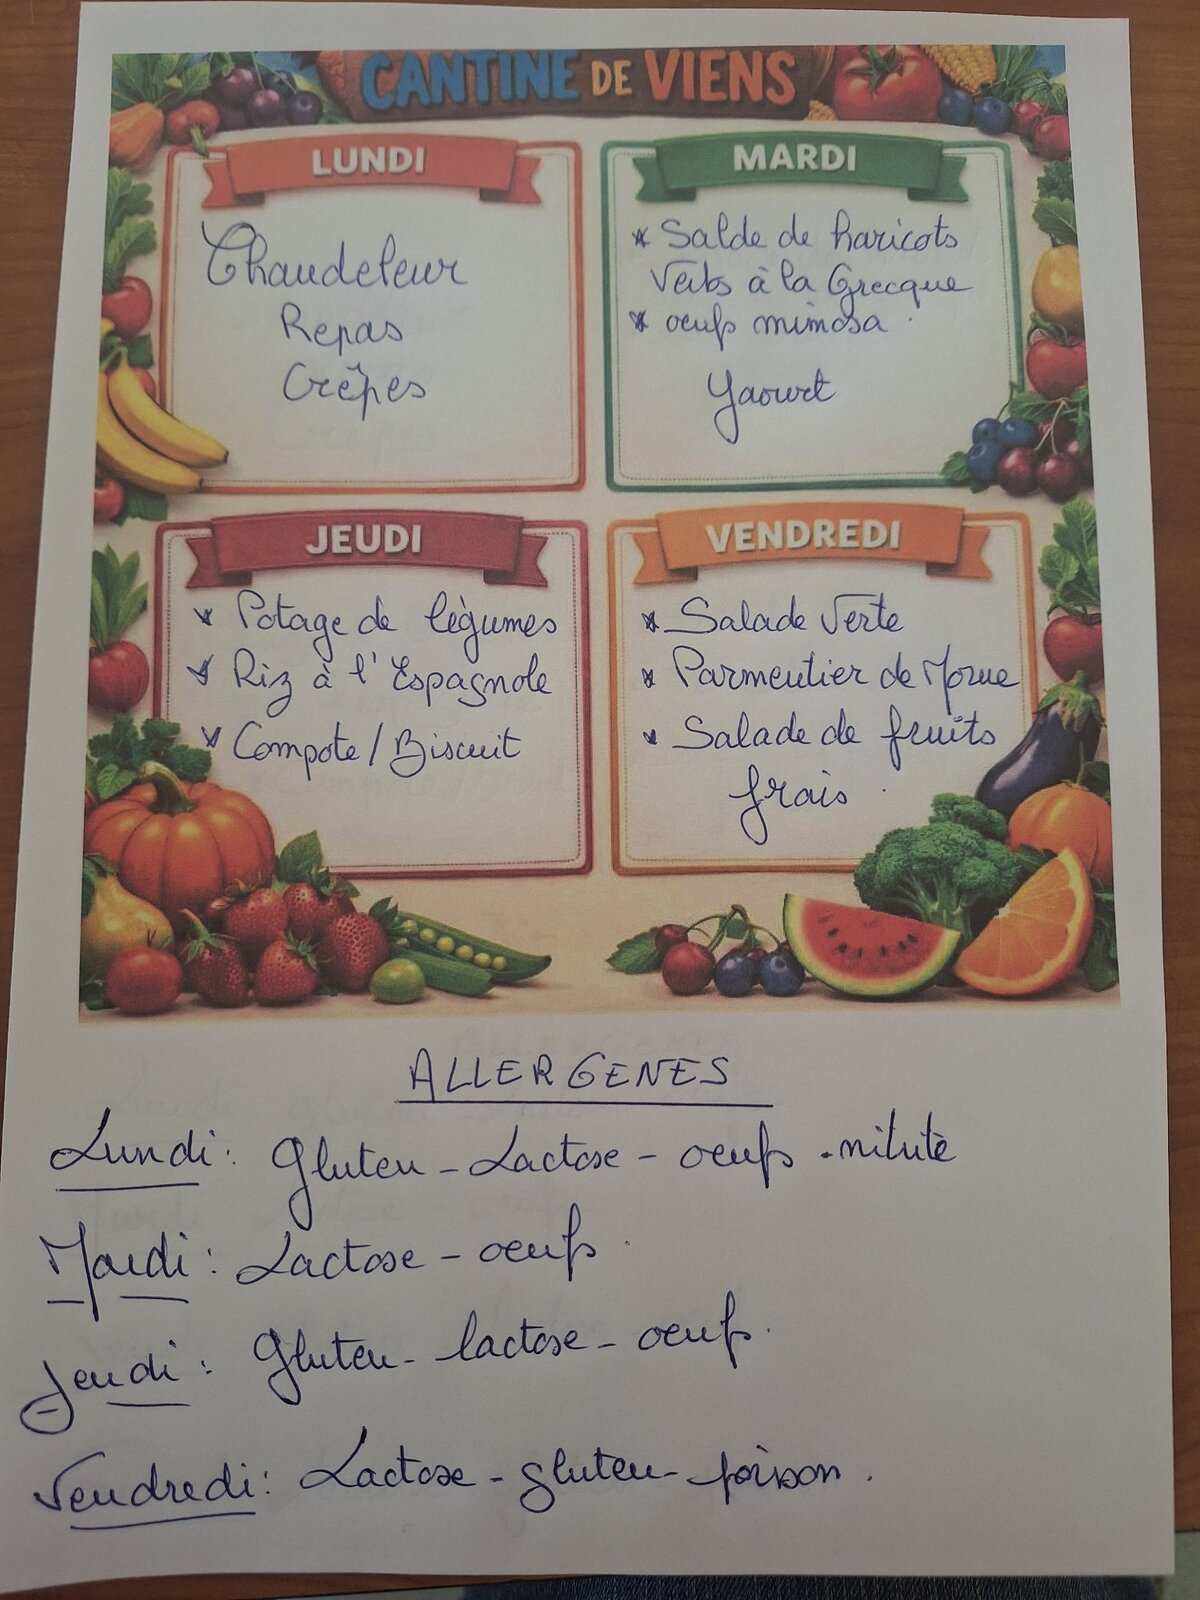 CANTINE DE VIENS
LUNDI
Chandeleur
Repas
Crêpes
MARDI
* Salde de haricots
Verts à la Grecque
* oeufs mimosa.
Yaourt
JEUDI
* Potage de légumes
* Riz à l'Espagnole
* Compote / Biscuit
VENDREDI
* Salade Verte
* Parmentier de Morue
* Salade de fruits
frais.
ALLERGENES
Lundi : Gluten - Lactose - oeufs -
Mardi : Lactose - oeufs.
Jeudi : Gluten - lactose - oeufs.
Vendredi : Lactose - gluten - poisson.